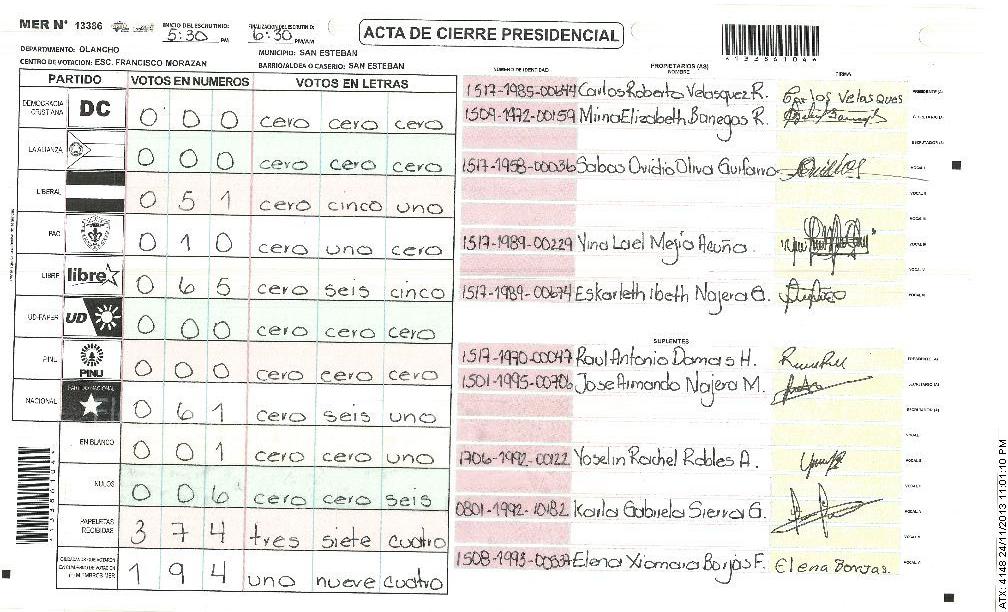 MER N° 13386
INICIO DEL ESCRUTINIO: 5:30 PM
FINALIZACION DEL ESCRUTINIO: 6:30 PM/AM
ACTA DE CIERRE PRESIDENCIAL
DEPARTAMENTO: OLANCHO
MUNICIPIO: SAN ESTEBAN
CENTRO DE VOTACION: ESC. FRANCISCO MORAZAN
BARRIO/ALDEA O CASERIO: SAN ESTEBAN
PARTIDO VOTOS EN NUMEROS VOTOS EN LETRAS
DEMOCRACIA CRISTIANA DC 0 0 0 cero cero cero
LA ALIANZA 0 0 0 cero cero cero
LIBERAL 0 5 1 cero cinco uno
PAC 0 1 0 cero uno cero
LIBRE libre 0 6 5 cero seis cinco
UD-FAPER UD 0 0 0 cero cero cero
PINU PINU 0 0 0 cero cero cero
NACIONAL PARTIDO NACIONAL 0 6 1 cero seis uno
EN BLANCO 0 0 1 cero cero uno
NULOS 0 0 6 cero cero seis
PAPELETAS RECIBIDAS 3 7 4 tres siete cuatro
1 9 4 uno nueve cuatro
NUMERO DE IDENTIDAD
PROPIETARIOS (AS)
NOMBRE
FIRMA
1517-1985-00644 Carlos Roberto Velasquez R. Carlos Velasques PRESIDENTE (A)
1509-1972-00159 Mirna Elizabeth Banegas R.
1517-1958-00036 Sabas Ovidio Oliva
1517-1989-00229 Yina Lael Mejia Acuña
1517-1989-00674 Eskarleth ibeth Najera G.
SUPLENTES
1517-1970-00047 Raul Antonio Damas H.
1501-1995-00706 Jose Armando Najera M.
1706-1992-00122 Yoselin Rachel Robles A.
0801-1992-10182 Karla Gabriela Sierra G.
Elena Xiomara Borjas F. Elena Borjas.
ATX: 4148 24/11/2013 11:01:10 PM